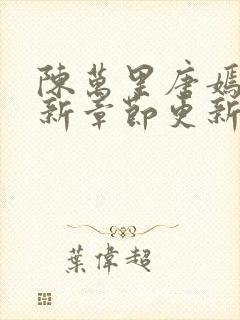 陳萬里唐嫣
新章節更新
葉偉超